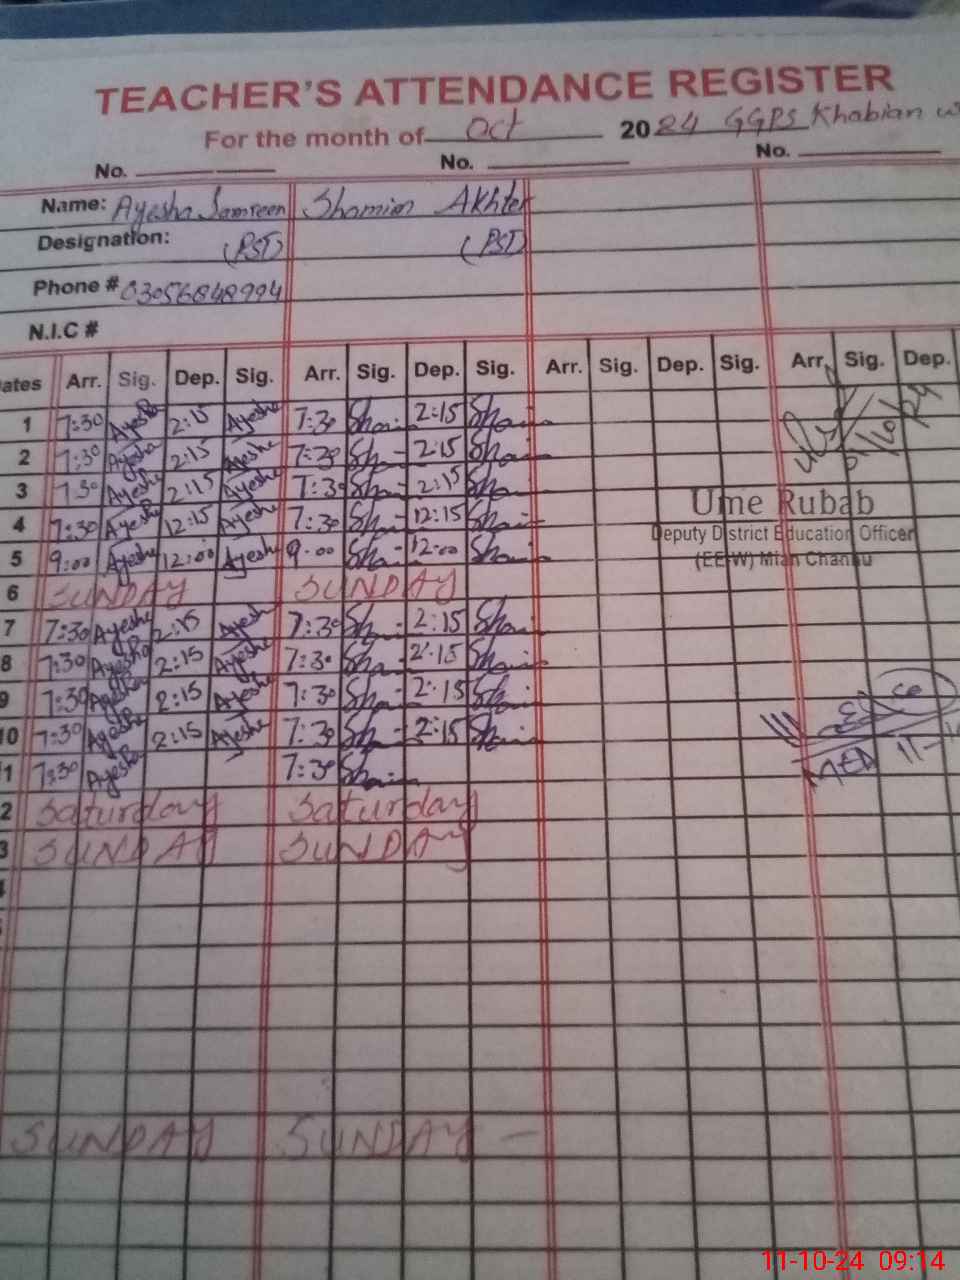 TEACHER'S ATTENDANCE REGISTER
For the month of Oct 2024 GGPS Khabian
No. No. No.
Name: Ayesha Samreen Shamim Akhter
Designation: (PST) (PST)
Phone # 03056848994
N.I.C #
ates Arr. Sig. Dep. Sig. Arr. Sig. Dep. Sig. Arr. Sig. Dep. Sig. Arr. Sig. Dep.
1 7:30 Ayesha 2:15 Ayesha 7:30 Sham 2:15 Sham
2 7:30 Ayesha 2:15 Ayesha 7:30 Sha 2:15 Sham
3 7:30 Ayesha 2:15 Ayesha 7:30 Sha 2:15 Sham
4 7:30 Ayesha 12:15 Ayesha 7:30 Sha 12:15 Sham
5 9:00 Ayesha 12:00 Ayesha 9:00 Sha 12:00 Sham
6 SUNDAY SUNDAY
7 7:30 Ayesha 2:15 Ayesha 7:30 Sha 2:15 Sham
8 7:30 Ayesha 2:15 Ayesha 7:30 Sha 2:15 Sham
9 7:30 Ayesha 2:15 Ayesha 7:30 Sha 2:15 Sha
10 7:30 Ayesha 2:15 Ayesha 7:30 Sha 2:15 Sham
1 7:30 Ayesha 7:30 Sham
2 Saturday Saturday
3 SUNDAY SUNDAY
SUNDAY SUNDAY
Ume Rubab
Deputy District Education Officer
(EE-W) Mian Channu
MEA 11-1
11-10-24 09:14